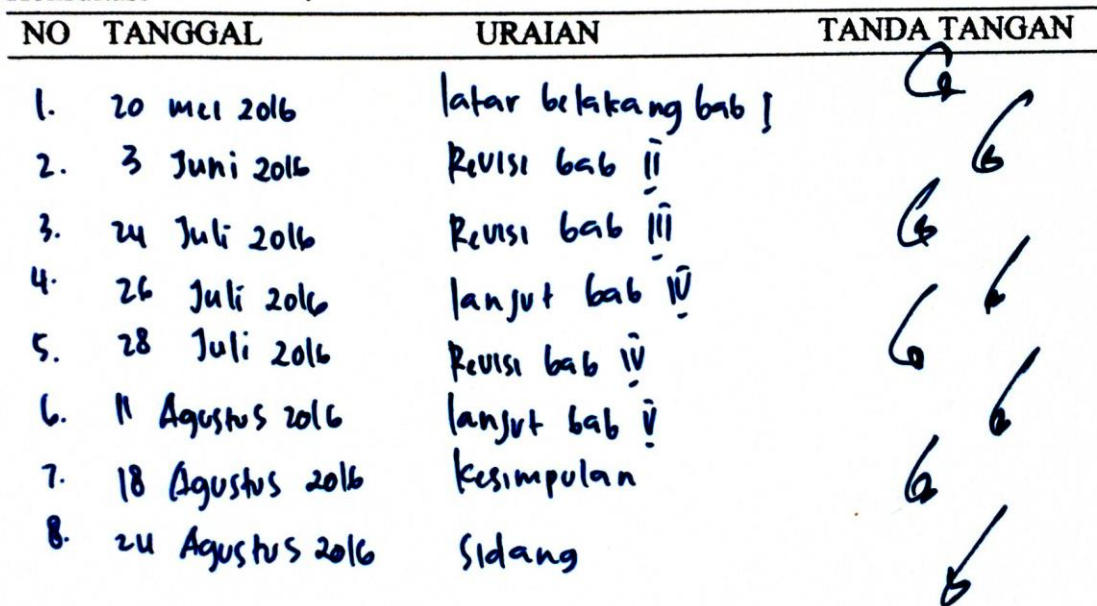 NO TANGGAL URAIAN TANDA TANGAN
1. 20 mei 2016 latar belakang bab I
2. 3 Juni 2016 Revisi bab II
3. 24 Juli 2016 Revisi bab III
4. 26 Juli 2016 lanjut bab IV
5. 28 Juli 2016 Revisi bab IV
6. 11 Agustus 2016 lanjut bab V
7. 18 Agustus 2016 kesimpulan
8. 24 Agustus 2016 Sidang